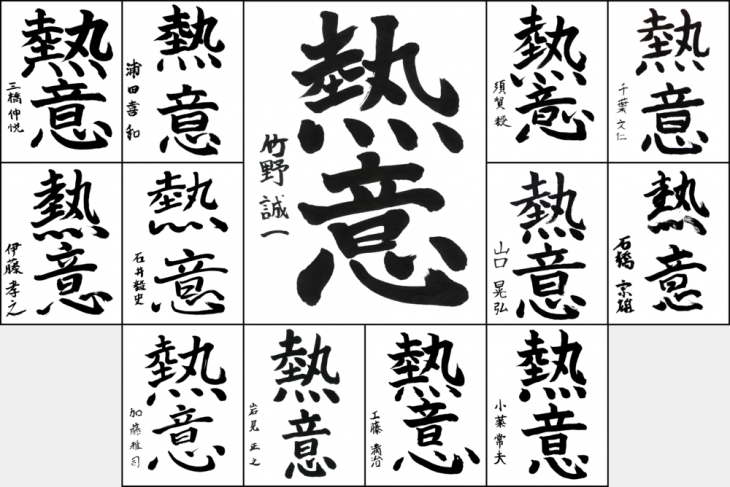 熱意
三橋伸悦
熱意
浦田幸和
熱意
竹野誠一
熱意
須賀毅
熱意
千葉文仁
熱意
伊藤孝之
熱意
石井毅史
熱意
山口晃弘
熱意
石橋宗雄
熱意
加藤雅司
熱意
岩見正之
熱意
工藤満治
熱意
小菜常夫